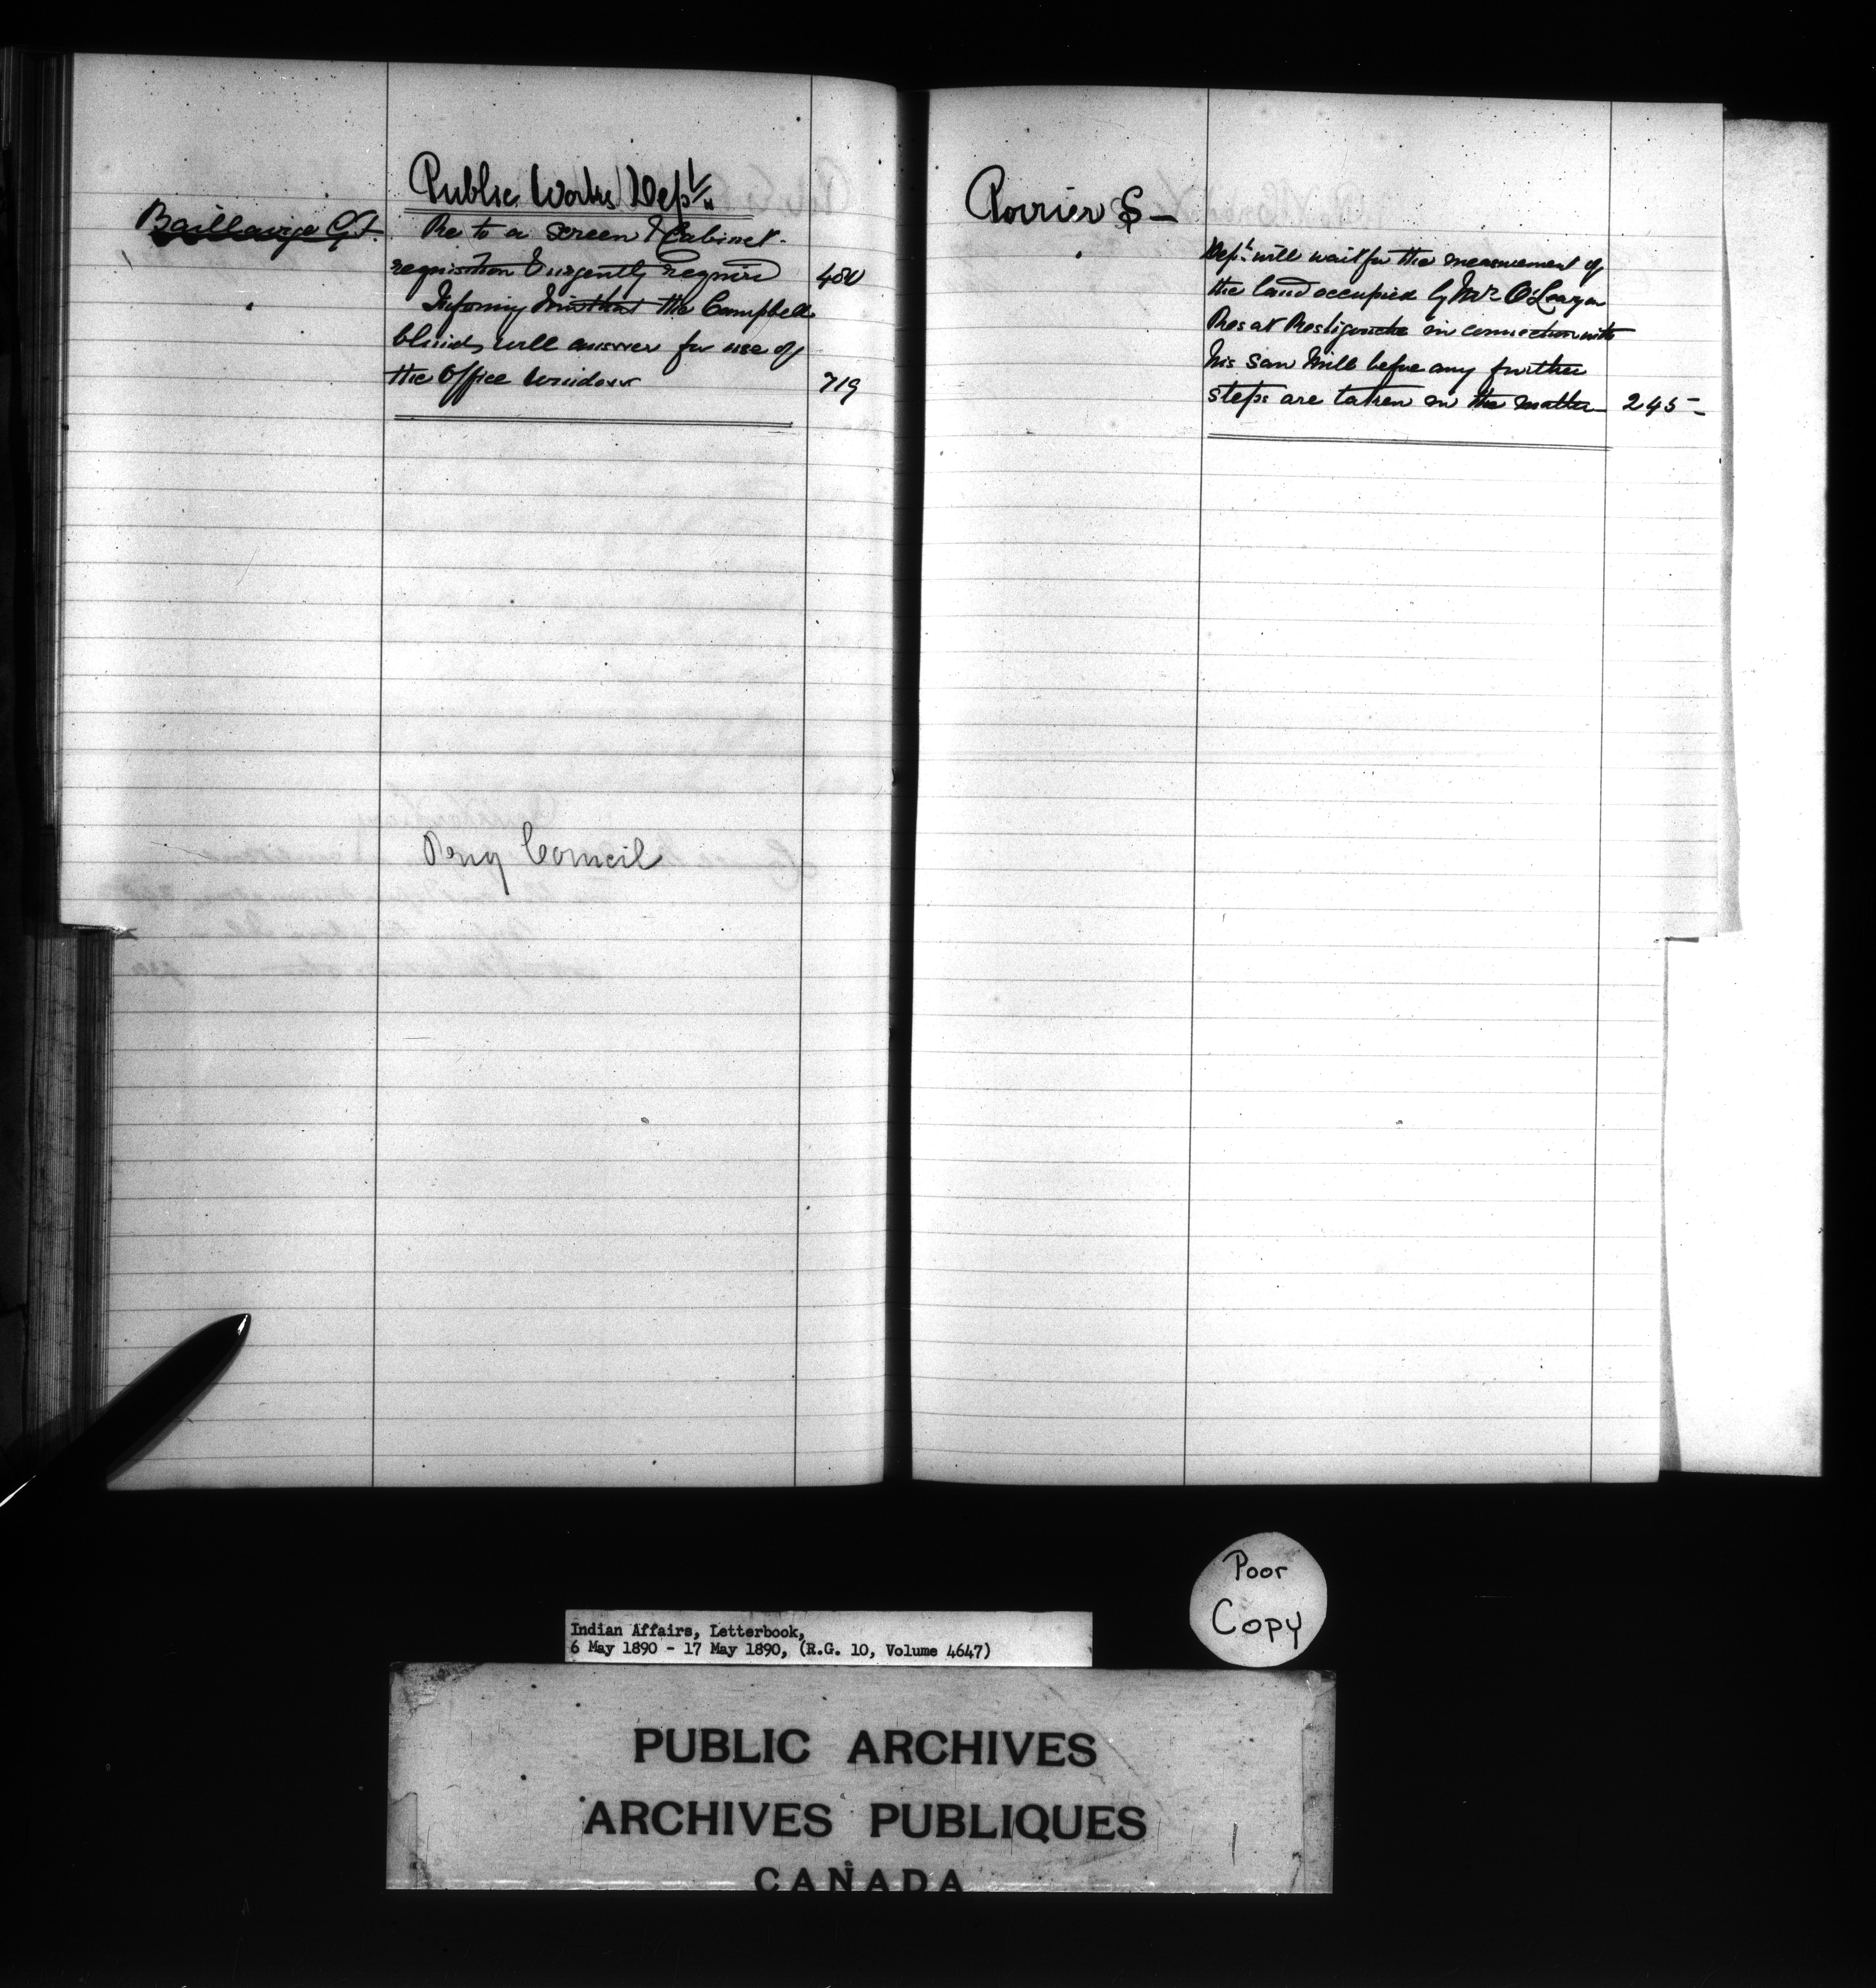 Public Works Dept.
Baillairge G.F.
Re to a screen & Cabinet
requisition & urgently require 480
Informing him that the Campbell
blinds will answer for use of
the Office Windows 719
Privy Council
Poirier S —
Dept. will wait for the measurement of
the land occupied by Mr O'Leary on
Res at Restigouche in connection with
his saw mill before any further
steps are taken in the matter 245 —
Poor
Copy
Indian Affairs, Letterbook,
6 May 1890 - 17 May 1890, (R.G. 10, Volume 4647)
PUBLIC ARCHIVES
ARCHIVES PUBLIQUES
CANADA